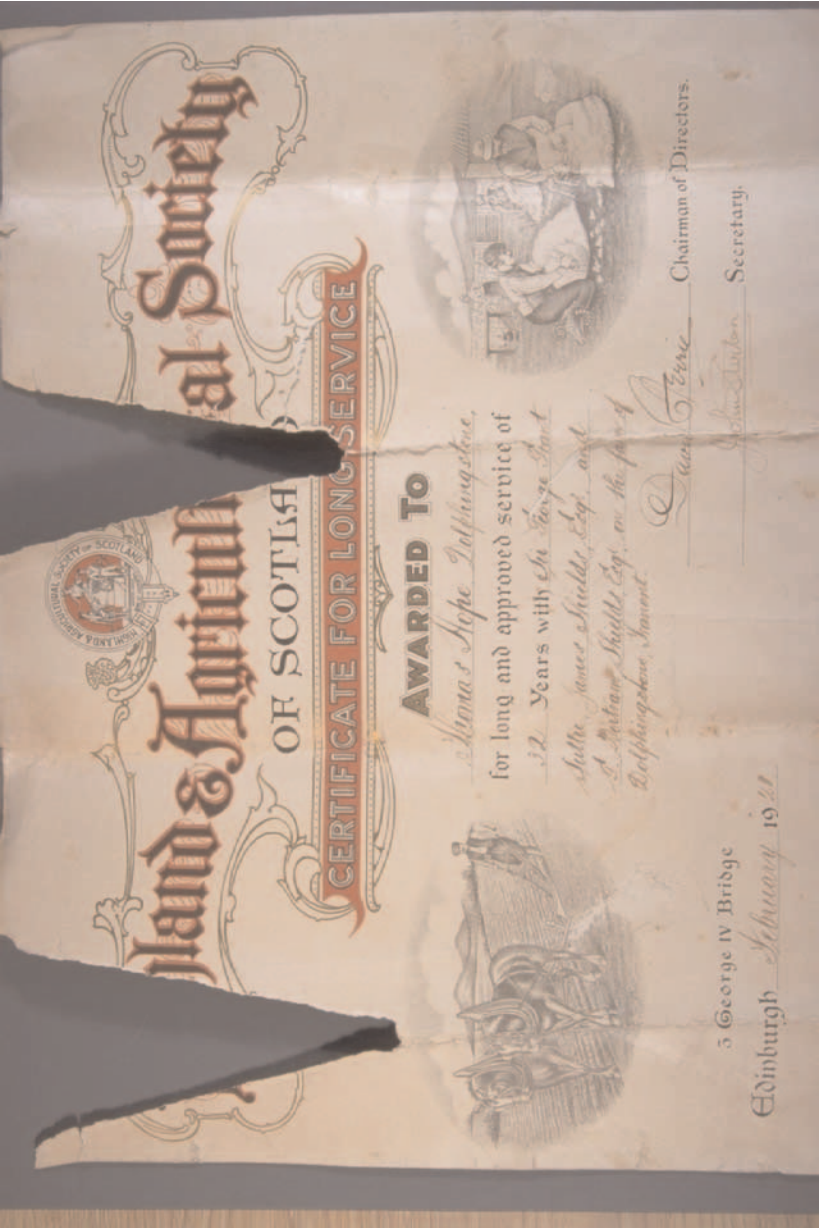 land & Agricult al Society
HIGHLAND & AGRICULTURAL SOCIETY OF SCOTLAND
OF SCOTLA
CERTIFICATE FOR LONG SERVICE
AWARDED TO
Thomas Hope Dolphingstone,
for long and approved service of
32 Years with Sir George Grant
Suttie James Shields, Esqr. and
Shields Esqr. on the farm of
Dolphingstone, Tranent.
David Chairman of Directors.
John Secretary.
3 George IV Bridge
Edinburgh February 19